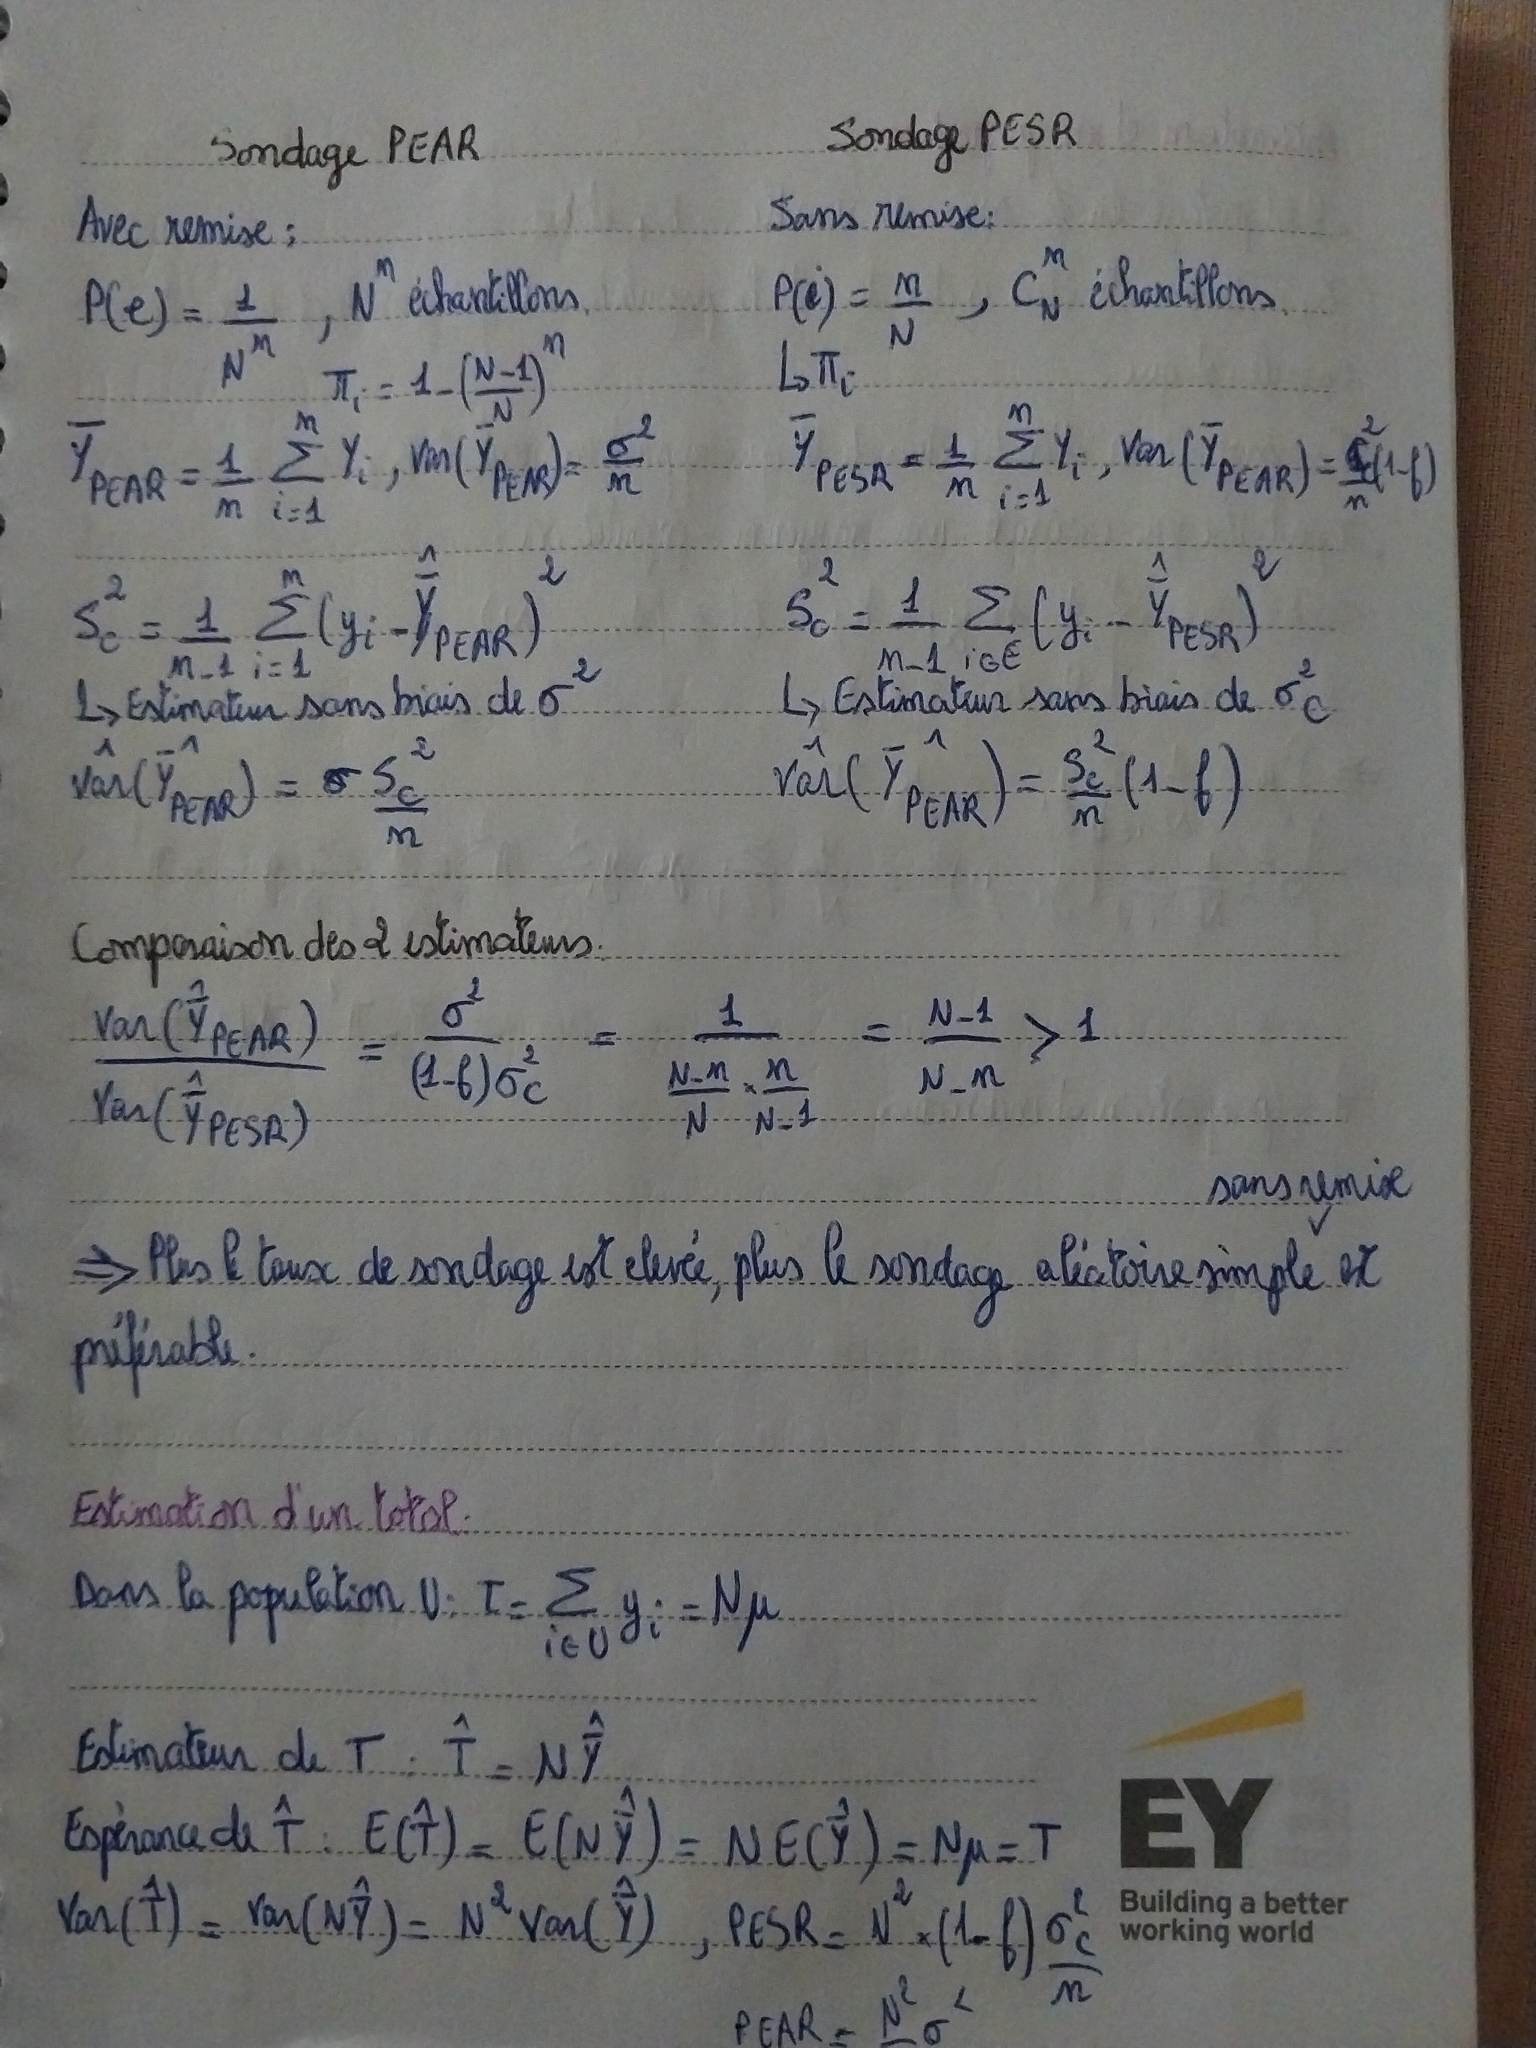 Sondage PEAR
Avec remise :
P(e) = 1/N^n , N^n échantillons.
π_i = 1-((N-1)/N)^n
Ȳ_PEAR = 1/n Σ_{i=1}^n Y_i , Var(Ȳ_PEAR) = σ²/n
S_c² = 1/(n-1) Σ_{i=1}^n (y_i - Ȳ̂_PEAR)²
↳ Estimateur sans biais de σ²
vâr(Ȳ̂_PEAR) = S_c²/n
Sondage PESR
Sans remise:
P(i) = n/N , C_N^n échantillons.
↳ π_i
Ȳ_PESR = 1/n Σ_{i=1}^n Y_i , Var(Ȳ_PEAR) = ²/n (1-f)
S_c² = 1/(n-1) Σ_{i∈E} (y_i - Ȳ̂_PESR)²
↳ Estimateur sans biais de σ_c²
vâr(Ȳ̂_PEAR) = S_c²/n (1-f)
Comparaison des 2 estimateurs.
Var(Ȳ̂_PEAR)/Var(Ȳ̂_PESR) = σ²/((1-f)σ_c²) = 1/((N-n)/N × n/(N-1)) = (N-1)/(N-n) > 1
sans remise
⇒ Plus le taux de sondage est elevée, plus le sondage aléatoire simple est
préférable.
Estimation d'un total.
Dans la population U: T = Σ_{i∈U} y_i = Nµ
Estimateur de T : T̂ = NȲ̂
Espérance de T̂ : E(T̂) = E(NȲ̂) = N E(Ȳ̂) = Nµ = T
Var(T̂) = Var(NȲ̂) = N² Var(Ȳ̂) , PESR = N² × (1-f) σ_c²/n
PEAR = N² σ²
EY
Building a better
working world